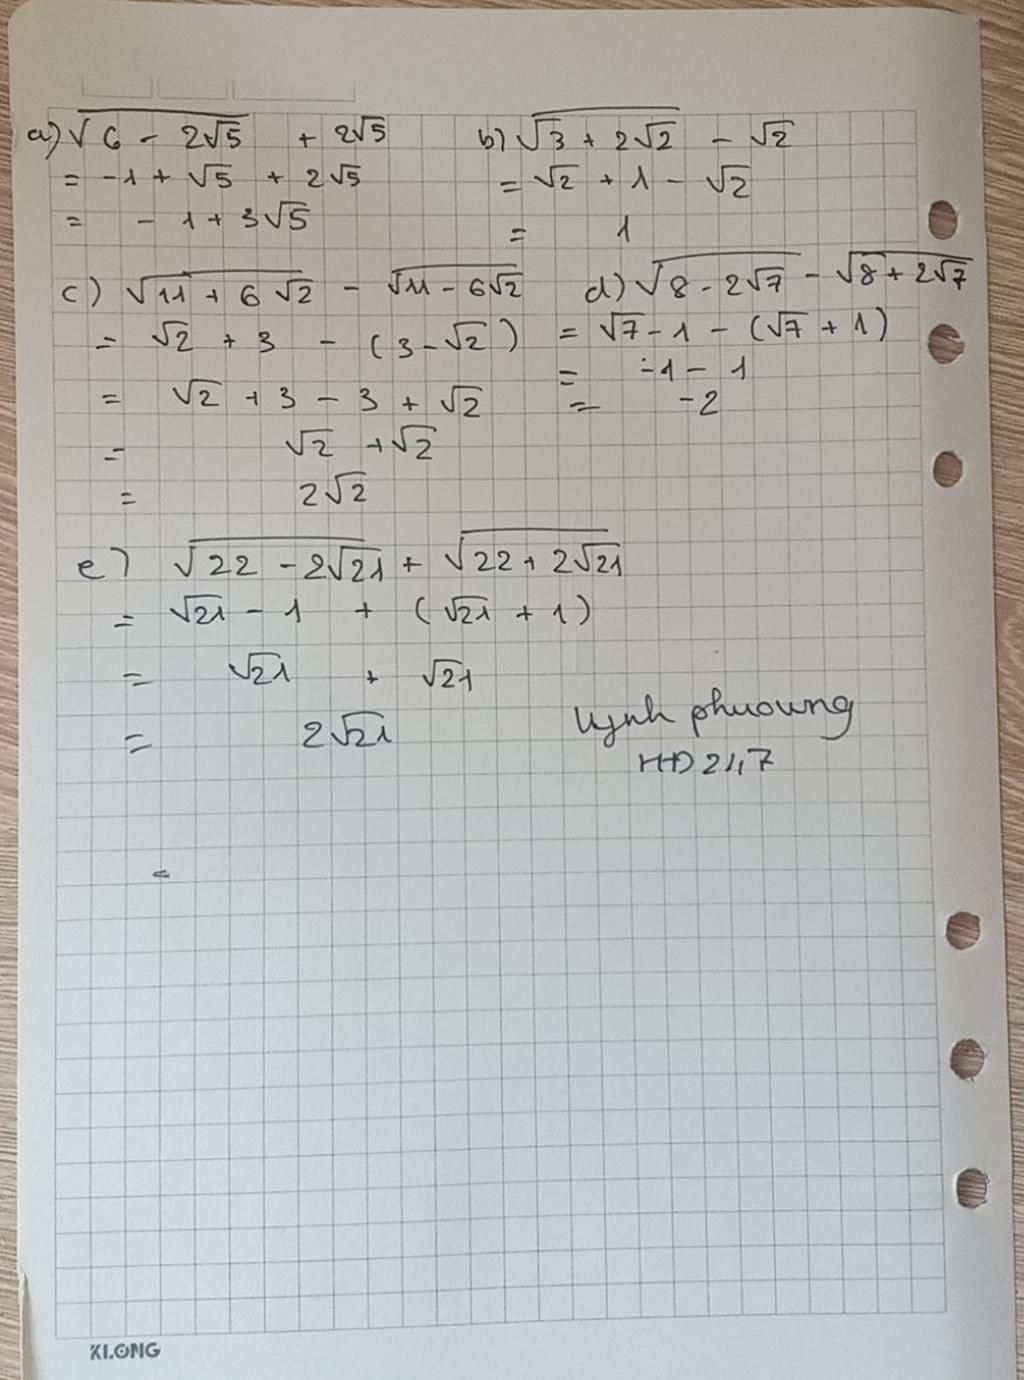 a) √(6 - 2√5) + 2√5
= -1 + √5 + 2√5
= - 1 + 3√5
b) √(3 + 2√2) - √2
= √2 + 1 - √2
= 1
c) √(11 + 6√2) - √(11 - 6√2)
= √2 + 3 - (3 - √2)
= √2 + 3 - 3 + √2
= √2 + √2
= 2√2
d) √(8 - 2√7) - √(8 + 2√7)
= √7 - 1 - (√7 + 1)
= -1 - 1
= -2
e) √(22 - 2√21) + √(22 + 2√21)
= √21 - 1 + (√21 + 1)
= √21 + √21
= 2√21
phuowng
HD 21,7
KLONG